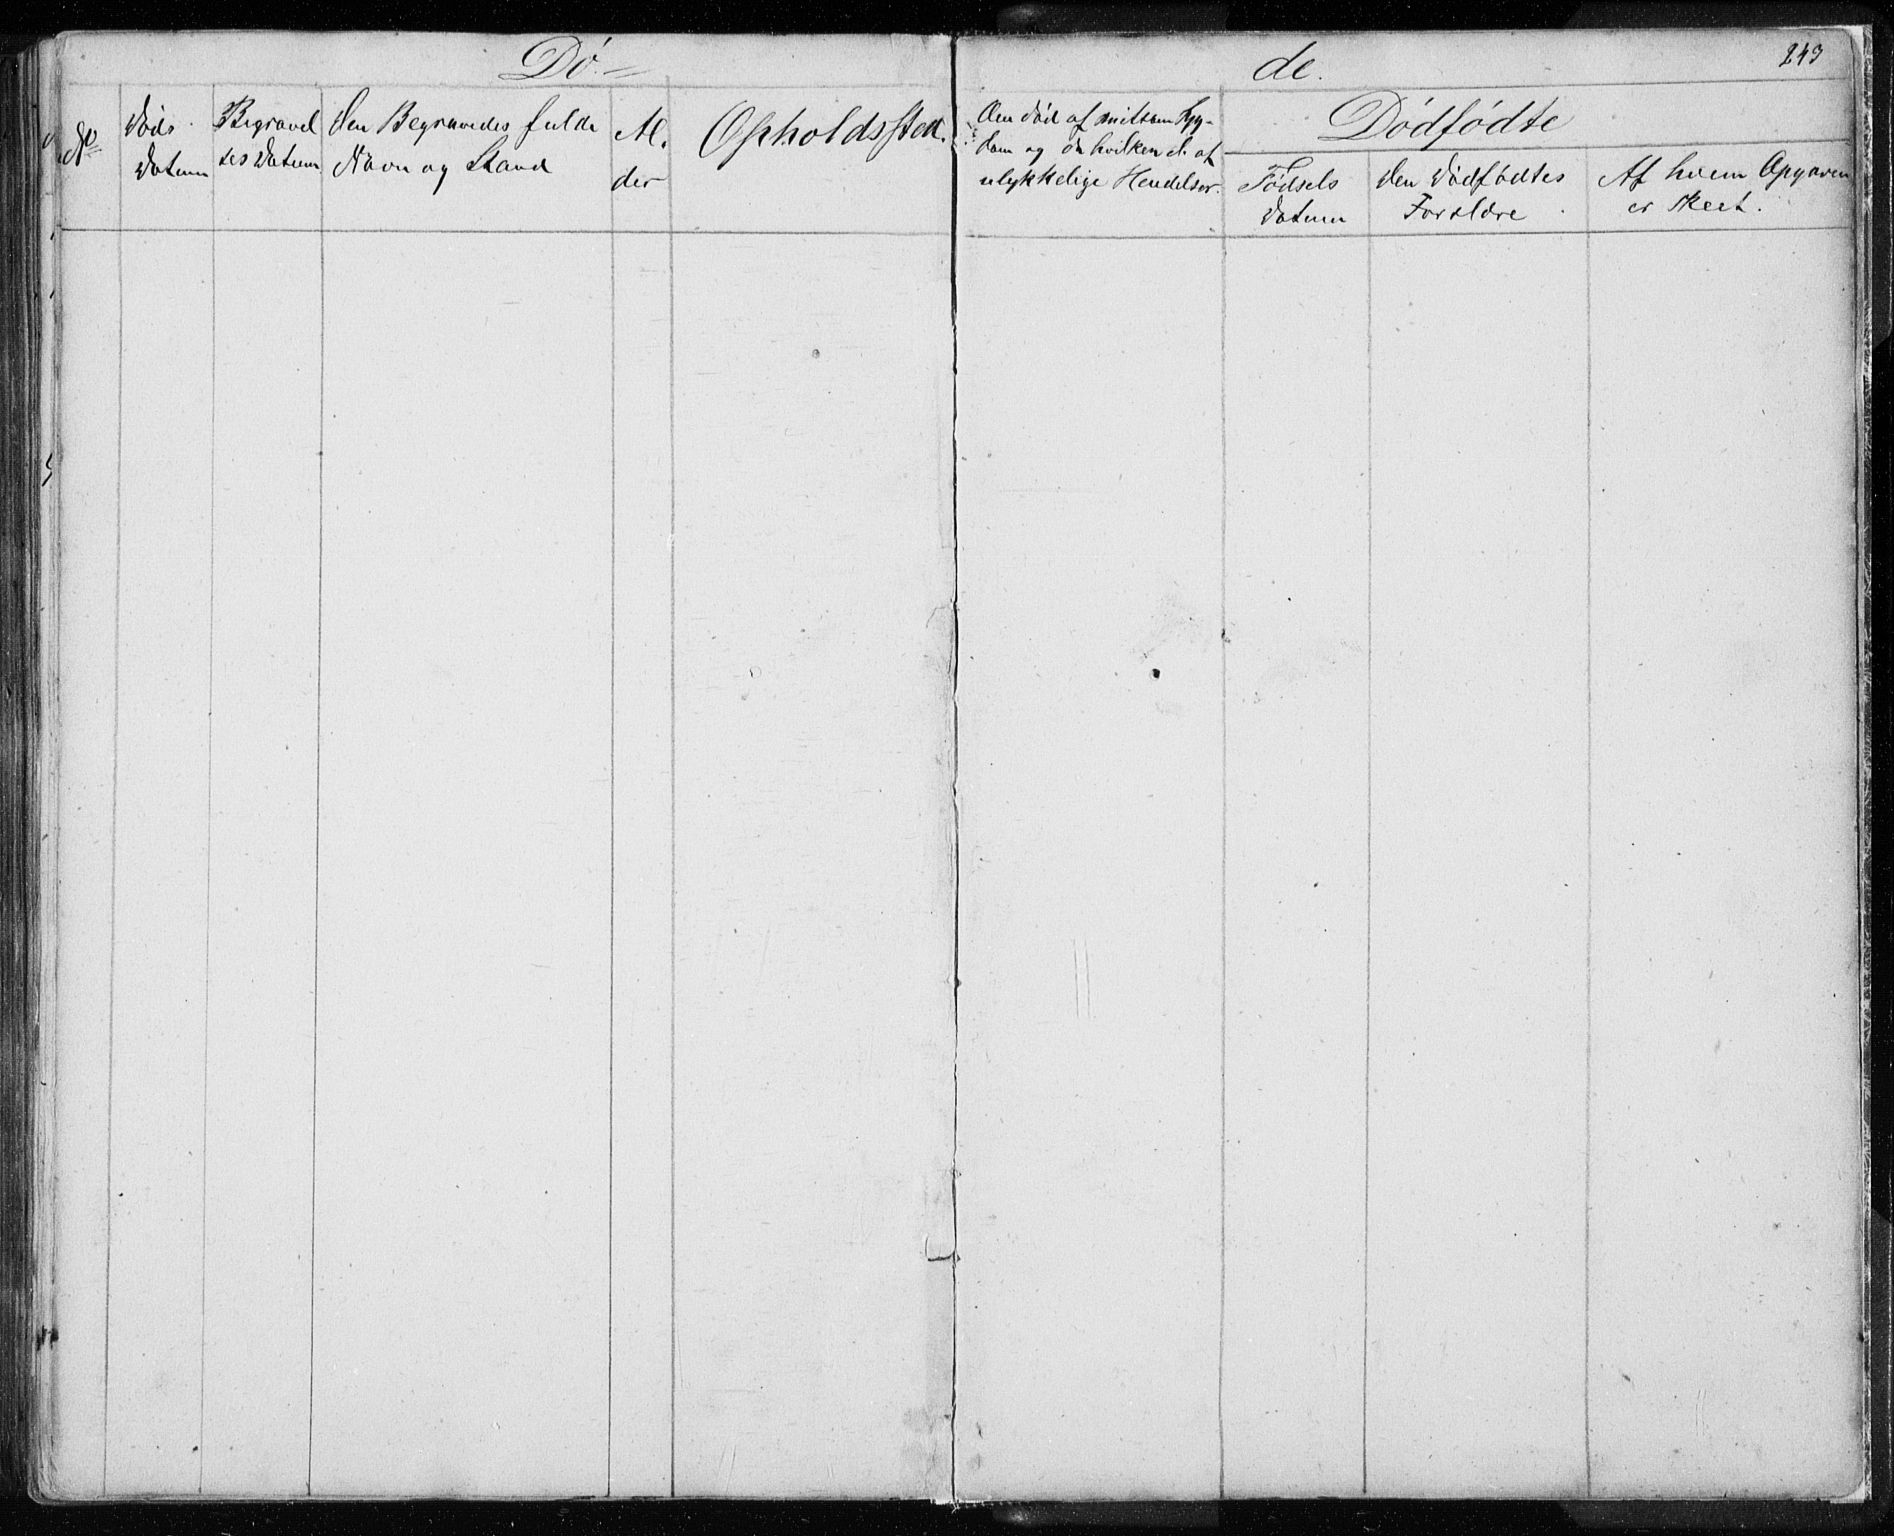 Dø-
de.
243
No
Døds
Datum
Begravel
ses Datum
den Begravedes fulde
Navn og Stand
Al.
der
Opholdssted.
Om død af smitsom Syg-
dom og om hvilken el. af
ulykkelige Hendelser.
Dødfødte
Fødsels
Datum
den Dødfødtes
Forældre
Af hvem Opgaven
er skeet.